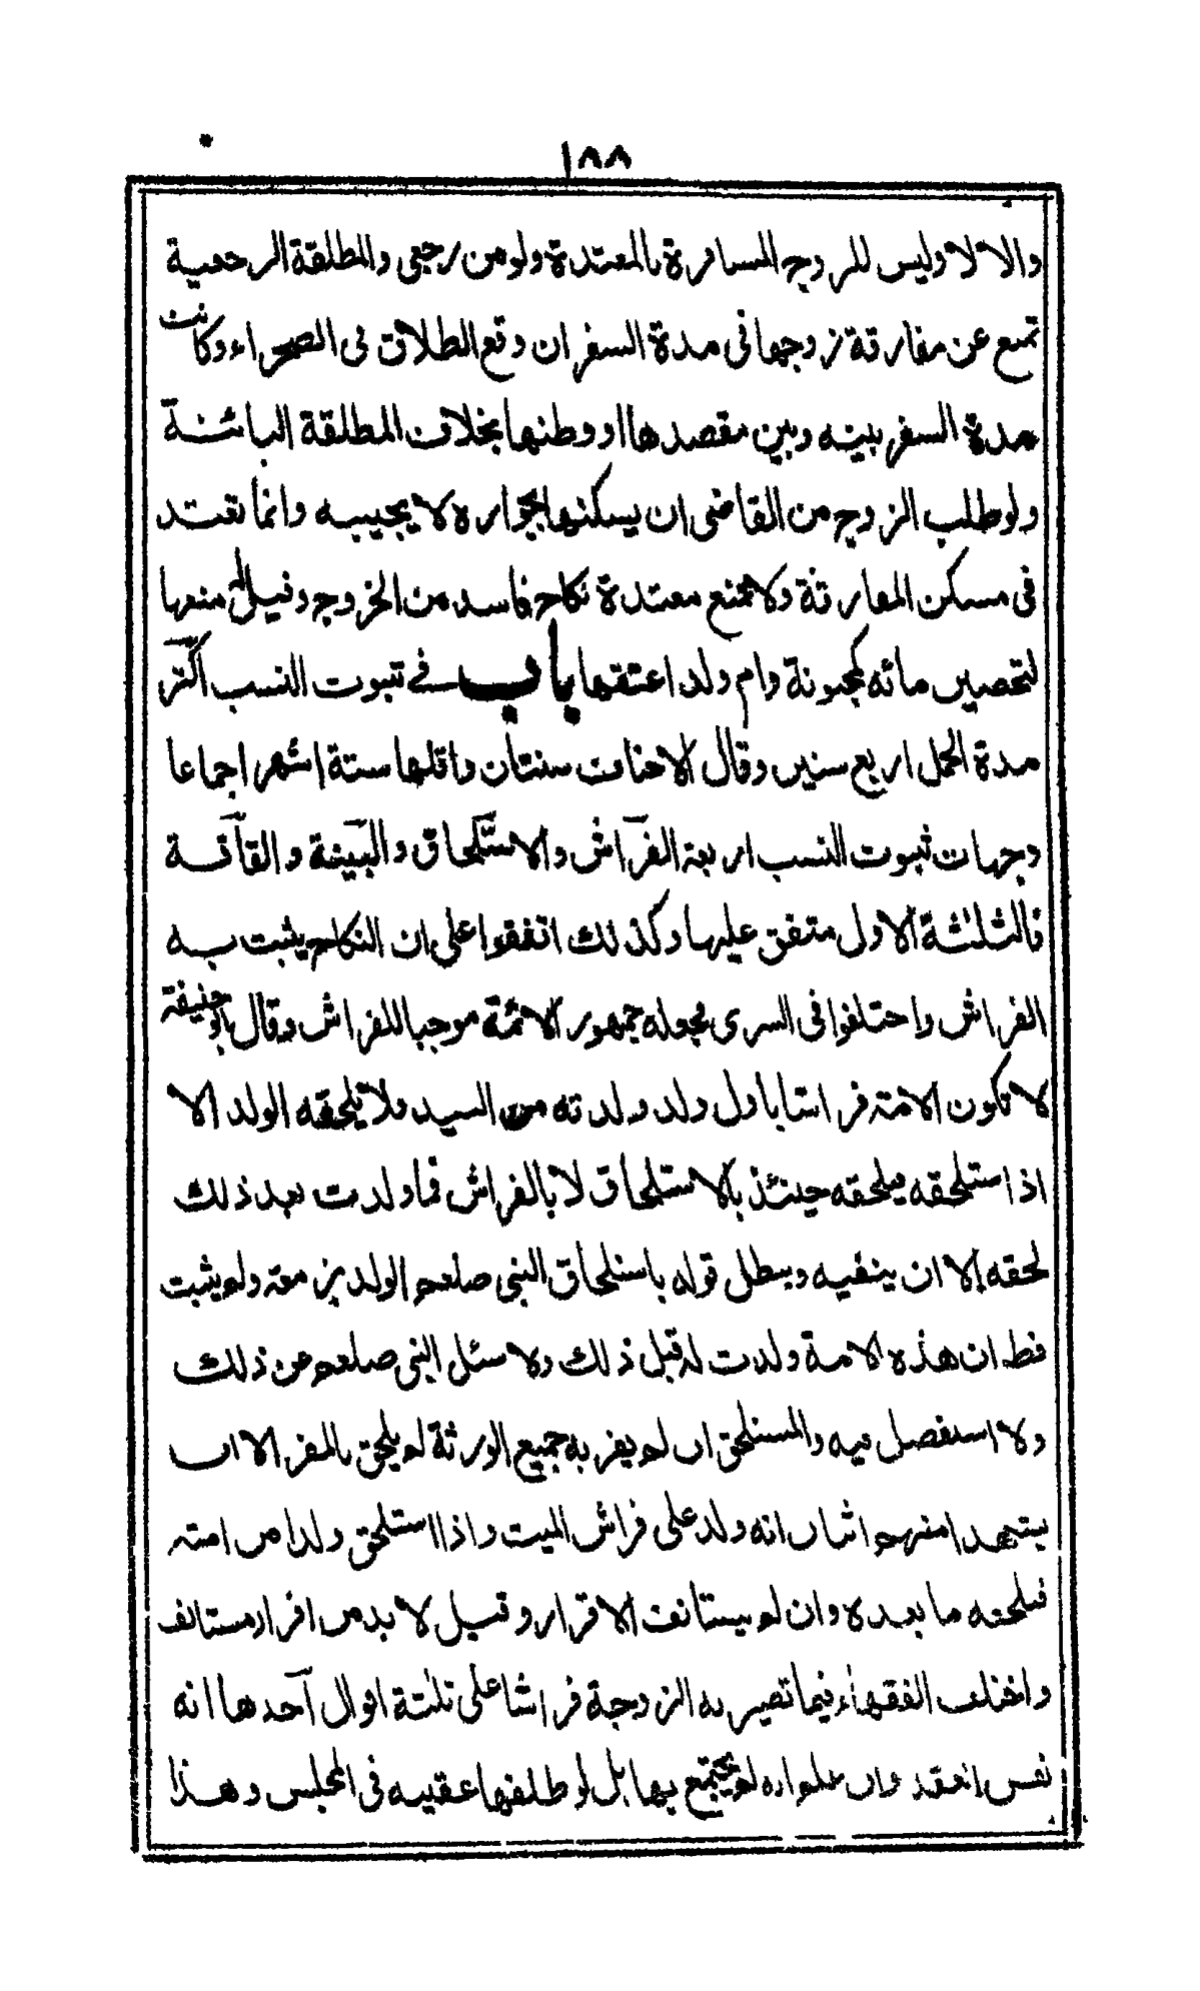 ١٨٨
والا لا وليس للزوج المسافرة بالمعتدة ولو من رجعي والمطلقة الرجعية
تمنع عن مفارقة زوجها في مدة السفر ان وقع الطلاق في الصحراء وكانت
مدة السفر بينه وبين مقصدها او وطنها بخلاف المطلقة البائنة
ولو طلب الزوج من القاضي ان يسكنها بجواره لا يجيبه وانما تعتد
في مسكن المفارقة ولا تمنع معتدة نكاح فاسد من الخروج وقيل له منعها
لتحصين مائه كمجنونة وام ولد اعتقها باب في ثبوت النسب اكثر
مدة الحمل اربع سنين وقال الاحناف سنتان واقلها ستة اشهر اجماعا
وجهات ثبوت النسب اربعة الفراش والاستلحاق والبينة والقافة
فالثلثة الاول متفق عليها وكذلك اتفقوا على ان النكاح يثبت به
الفراش واختلفوا في السرى فجعله جمهور الائمة موجبا للفراش وقال ابو حنيفة
لا تكون الامة فراشا باول ولد ولدته من السيد ولا يلحقه الولد الا
اذا استلحقه فيلحقه حينئذ بالاستلحاق لا بالفراش فما ولدت بعد ذلك
لحقه الا ان ينفيه ويبطل قوله باستلحاق النبى صلعم الولد بزمعة ولم يثبت
قط ان هذه الامة ولدت له قبل ذلك ولا سئل النبى صلعم عن ذلك
ولا استفصل فيه والمستلحق ان لم يقر به جميع الورثة لم يلحق بالمقر الا ان
يشهد منهم اثنان انه ولد على فراش الميت واذا استلحق ولدا من امته
فيلحقه ما بعده وان لم يستانف الاقرار وقيل لا بد من اقرار مستانف
واختلف الفقهاء فيما تصير به الزوجة فراشا على ثلثة اقوال احدها انه
نفس العقد وان علم انه لم يجتمع بها بل لو طلقها عقيبه في المجلس وهذا